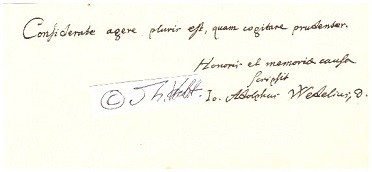 Conſiderate agere pluris eſt, quam cogitare prudenter.
Honoris et memoriæ cauſa
ſcripſit
Io. Adolphus Wedelius, D.
©